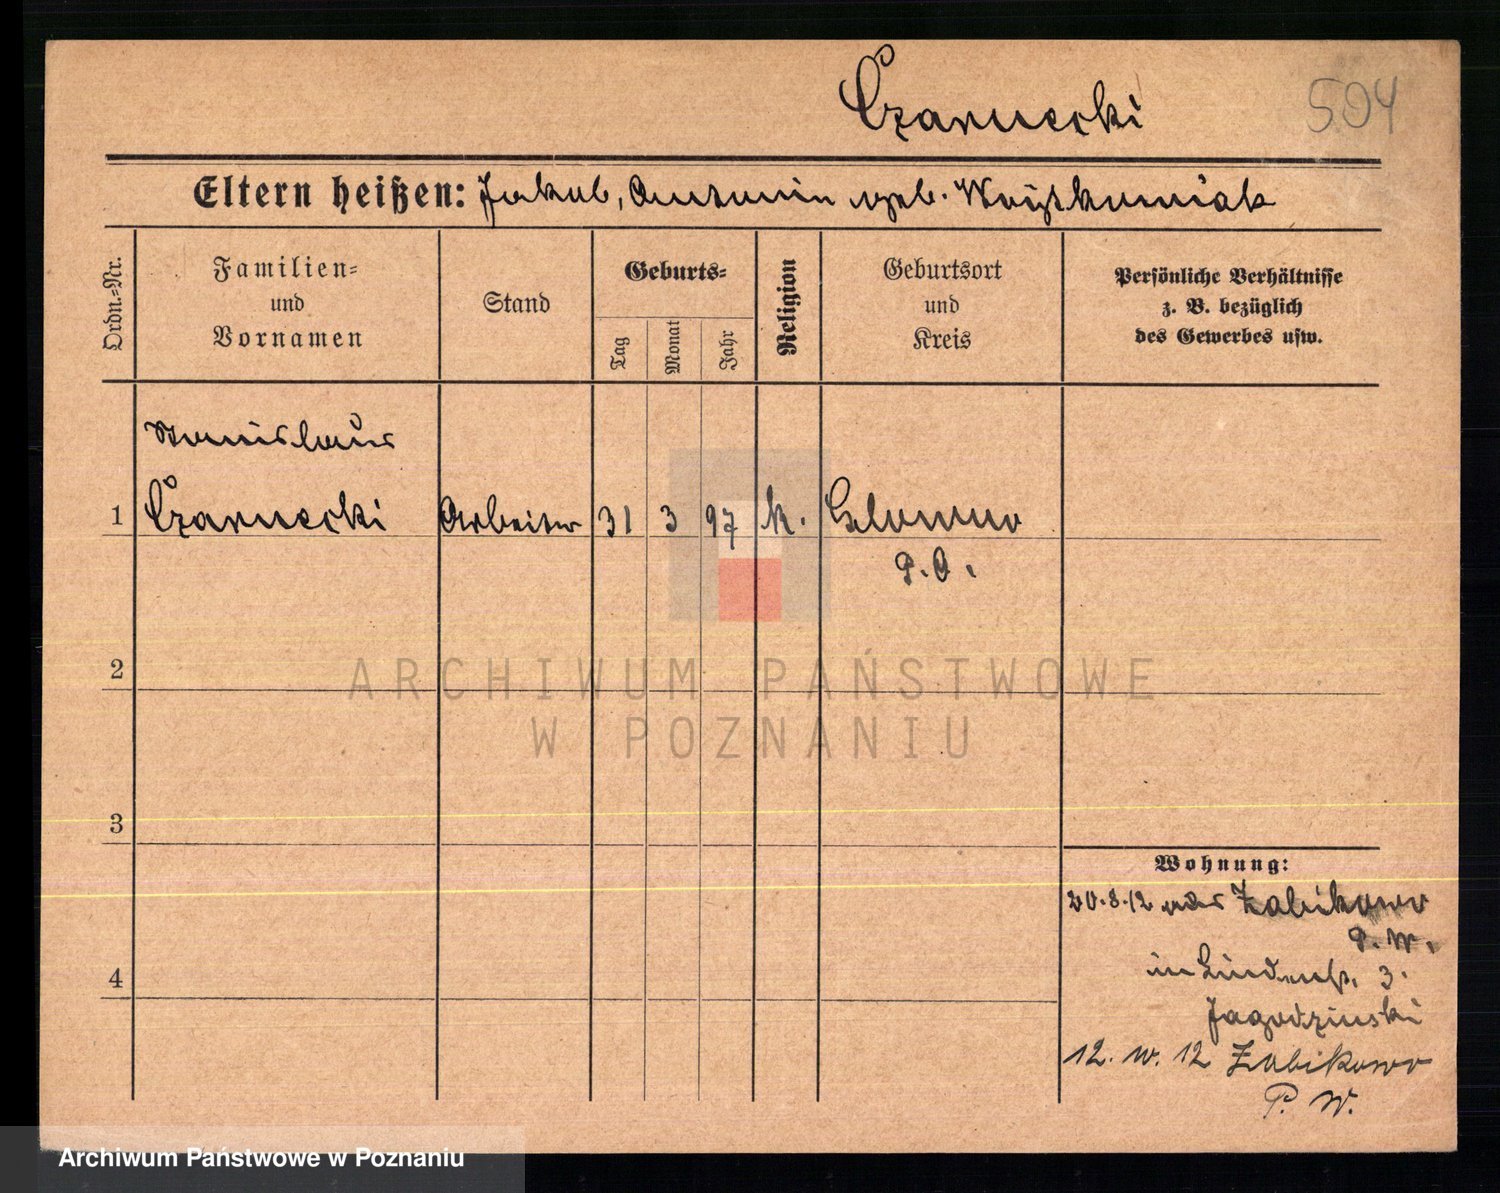 Czarnecki
504
Eltern heißen: Jakob, Antonin geb. Woizkowiak
Ordn.=Nr.
Familien=
und
Vornamen
Stand
Geburts=
Tag
Monat
Jahr
Religion
Geburtsort
und
Kreis
Persönliche Verhältnisse
z. B. bezüglich
des Gewerbes usw.
Stanislaus
1 Czarnecki Arbeiter 31 3 97 k. Glowno
P.O.
2
ARCHIWUM PAŃSTWOWE
W POZNANIU
3
Wohnung:
20.8.12 aus Zabikowo
P. W.
4
in Lindenstr. 3.
Jagodzinski
12. 12 Zabikowo
P. W.
Archiwum Państwowe w Poznaniu